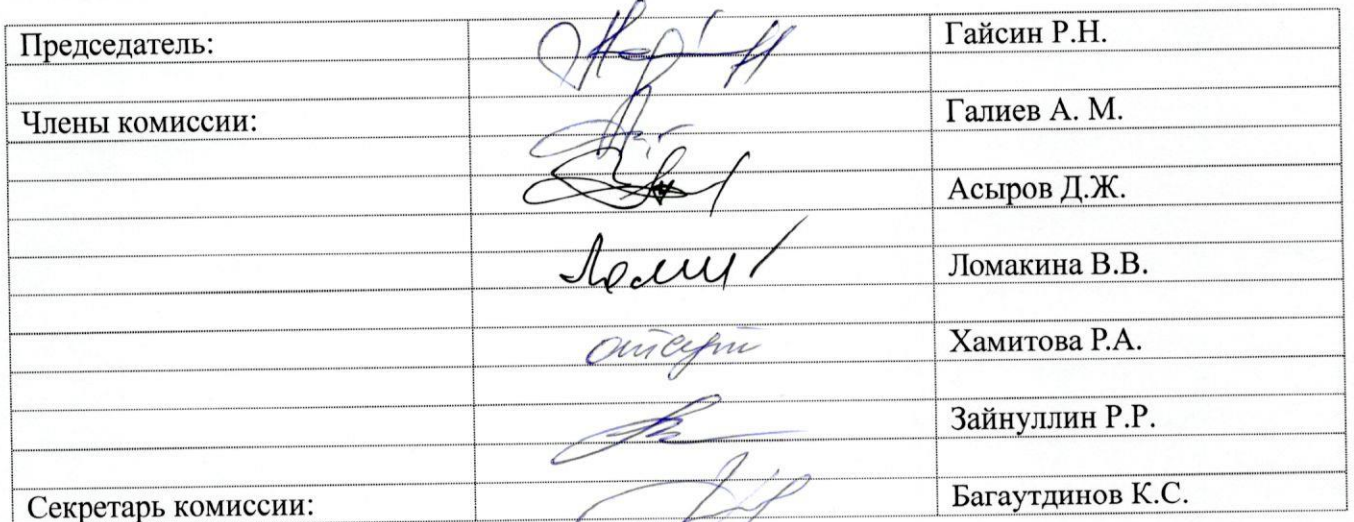 Председатель: Гайсин Р.Н.
Члены комиссии: Галиев А. М.
Асыров Д.Ж.
Ломакина В.В.
отсут Хамитова Р.А.
Зайнуллин Р.Р.
Секретарь комиссии: Багаутдинов К.С.